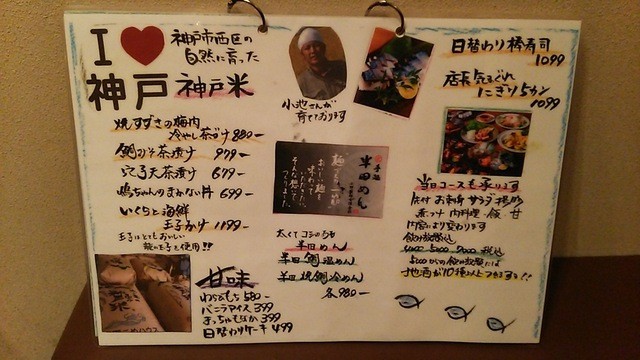 I ♥ 神戸市西区の
自然に育った
神戸 神戸米
焼すずきの梅肉
冷やし茶づけ 880-
鯛のごま茶漬け 979-
穴子天茶漬け 679-
鳴ちゃんのまかない丼 699-
いくらと海鮮
玉子かけ 1199-
玉子はとてもおいしい
小池さんが
育てております
手延
半田めん
太くてコシのある
半田めん
半田鯛温めん
半田焼鯛冷めん
各980-
甘味
わらびもち 580-
バニラアイス 399
まっちゃもなか 399
日替わりケーキ 499
日替わり棒寿司
1099
店長気まぐれ
にぎり5カン
1099
当日コースも承ります
先付 お刺身 サラダ 揚物
煮つけ 肉料理・飯・甘
内容により変わります
飲み放題込
4000 5000 7000 税込
5000からの飲み放題には
地酒が10種以上つきます!!